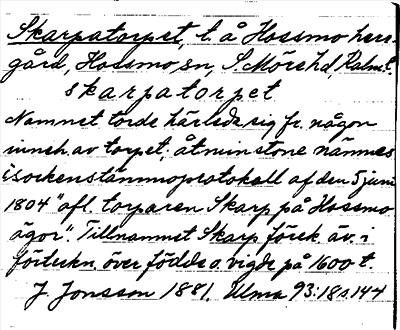 Skarpatorpet, t. å Hossmo herr-
gård, Hossmo sn, S. Möre hd, Kalm. l.
skarpatorpet
Namnet torde härleda sig fr. någon
inneh. av torpet; åtminstone nämnes
i sockenstämmoprotokoll af den 5 juni
1804 "afl. torparen Skarp på Hossmo
ägor". Tillnamnet Skarp förek. äv. i
förteckn. över födde o. vigde på 1600 t.
J. Jonsson 1881. Ulma 93:18 s. 144